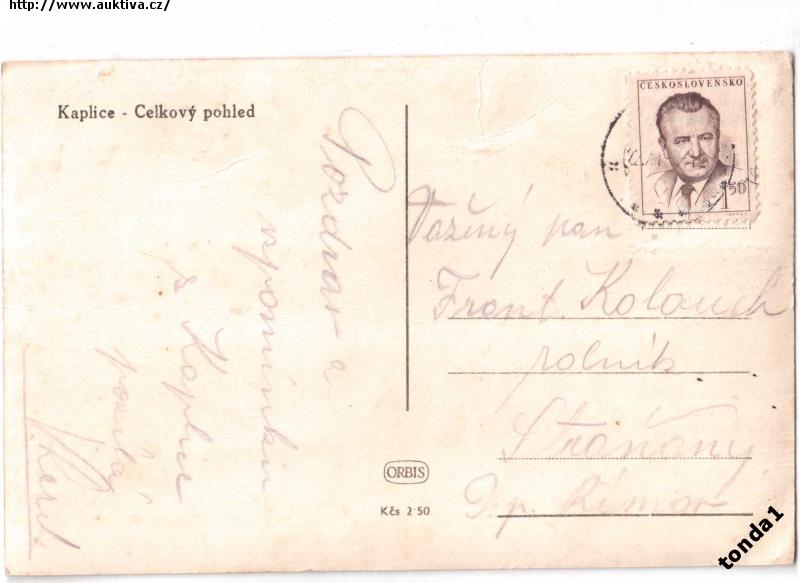 http://www.auktiva.cz/
Kaplice - Celkový pohled
Pozdrav a
vzpomínku
z Kaplice
posílá
ČESKOSLOVENSKO
1 50
Vážený pan
Frant. Kolouch
rolník
Straňany
P. p. Římov
ORBIS
Kčs 2·50
tonda1